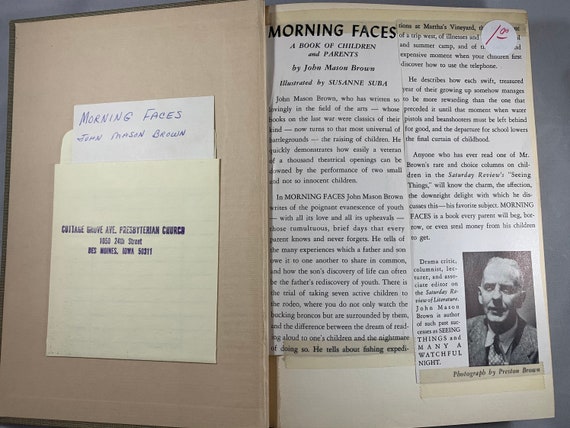 MORNING FACES
JOHN MASON BROWN
COTTAGE GROVE AVE. PRESBYTERIAN CHURCH
1050 24th Street
DES MOINES, IOWA 50311
MORNING FACES
A BOOK OF CHILDREN
and PARENTS
by John Mason Brown
Illustrated by SUSANNE SUBA
John Mason Brown, who has written so
lovingly in the field of the arts — whose
books on the last war were classics of their
kind — now turns to that most universal of
battlegrounds — the raising of children. He
quickly demonstrates how easily a veteran
of a thousand theatrical openings can be
downed by the performance of two small
and not so innocent children.
In MORNING FACES John Mason Brown
writes of the poignant evanescence of youth
— with all its love and all its upheavals —
those tumultuous, brief days that every
parent knows and never forgets. He tells of
the many experiences which a father and son
owe it to one another to share in common,
and how the son's discovery of life can often
be the father's rediscovery of youth. There
is the trial of taking seven active children to
the rodeo, where you do not only watch the
bucking broncos but are surrounded by them,
and the difference between the dream of read-
ing aloud to one's children and the nightmare
of doing so. He tells about fishing expedi-
tions at Martha's Vineyard, the
of a trip west, of illnesses and
and summer camp, and of
expensive moment when your children first
discover how to use the telephone.
He describes how each swift, treasured
year of their growing up somehow manages
to be more rewarding than the one that
preceded it until that moment when water
pistols and beanshooters must be left behind
for good, and the departure for school lowers
the final curtain of childhood.
Anyone who has ever read one of Mr.
Brown's rare and choice columns on chil-
dren in the Saturday Review's "Seeing
Things," will know the charm, the affection,
the downright delight with which he dis-
cusses this—his favorite subject. MORNING
FACES is a book every parent will beg, bor-
row, or even steal money from his children
to get.
Drama critic,
columnist, lec-
turer, and asso-
ciate editor on
the Saturday Re-
view of Literature,
John Mason
Brown is author
of such past suc-
cesses as SEEING
THINGS and
MANY A
WATCHFUL
NIGHT.
Photograph by Preston Brown
1.00